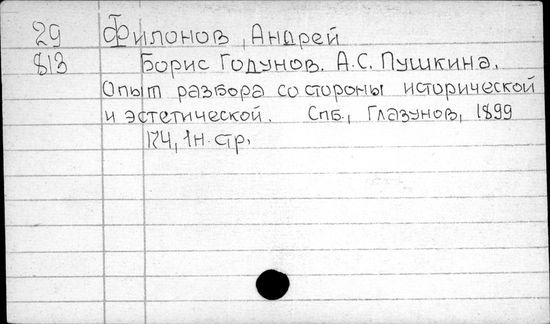 29 Филонов, Андрей
813 Борис Годунов. А.С. Пушкина.
Опыт разбора со стороны исторической
и эстетической. Спб., Глазунов, 1899
174, 1н. стр.